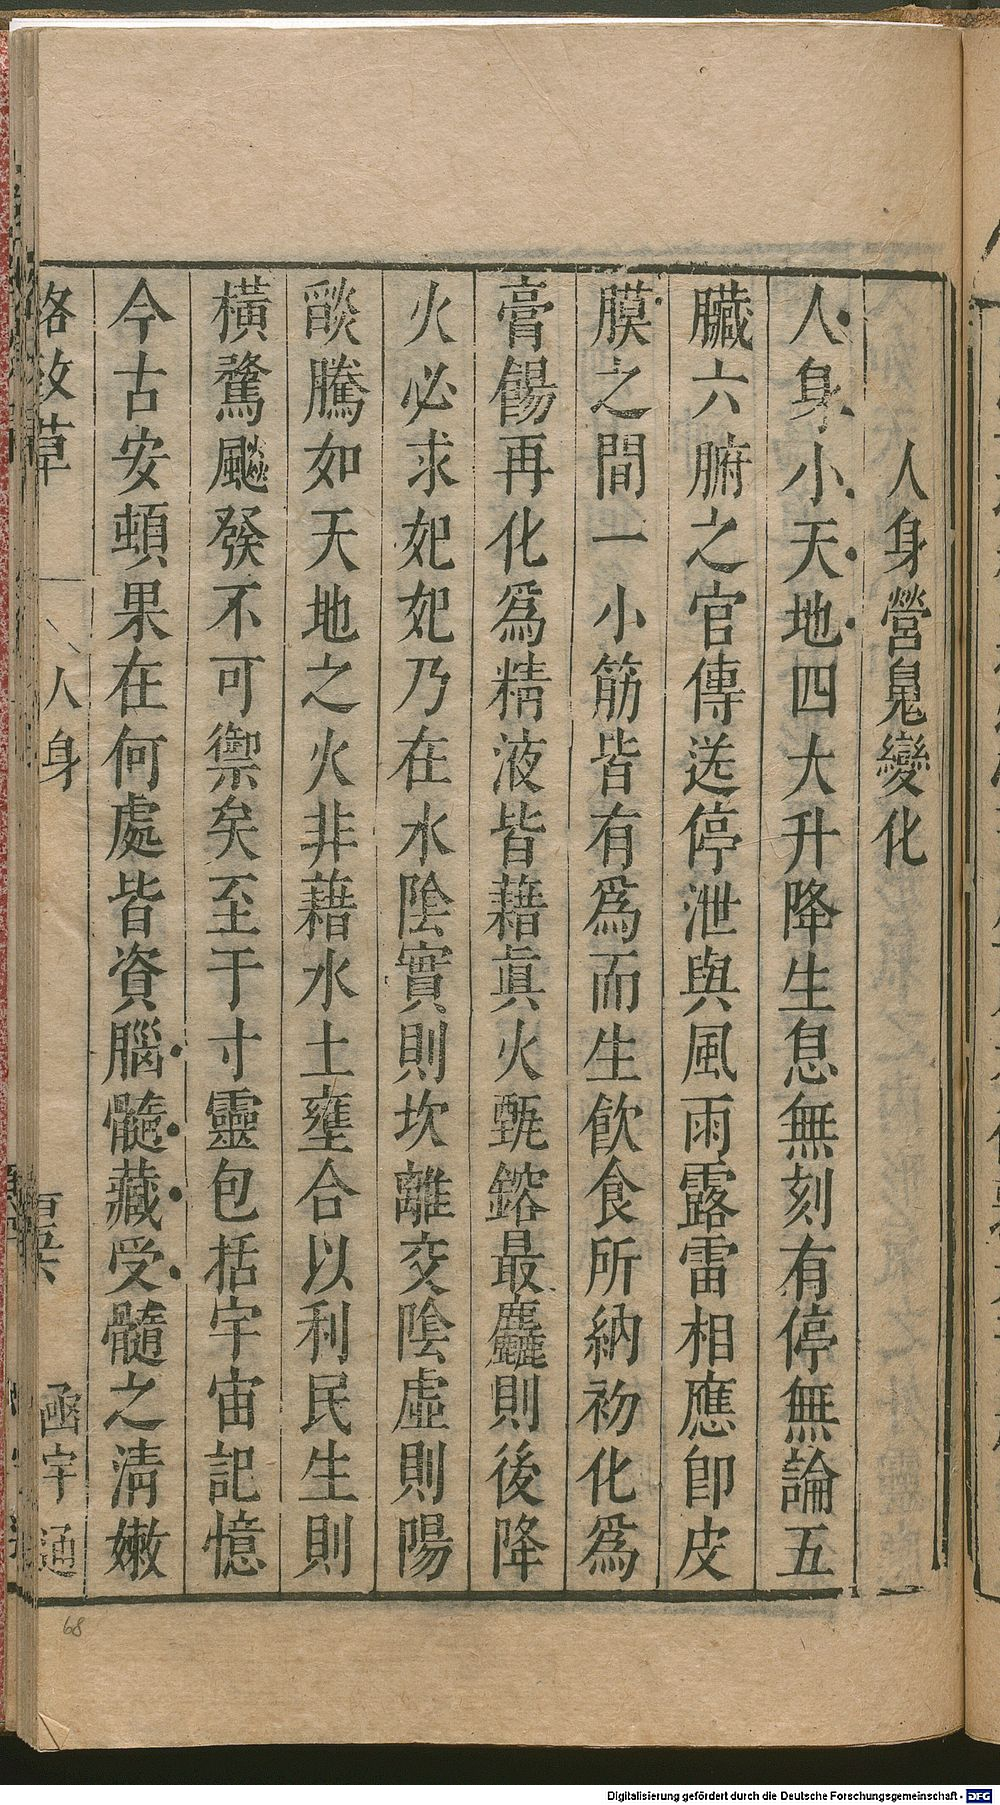 人身營䰟變化
人身小天地四大升降生息無刻有停無論五
臟六腑之官傳送停泄與風雨露雷相應即皮
膜之間一小筋皆有為而生飲食所納初化為
膏餳再化為精液皆藉眞火甄鎔最麤則後降
火必求妃妃乃在水陰實則坎離交陰虛則陽
燄騰如天地之火非藉水土壅合以利民生則
橫騖飈發不可禦矣至于寸靈包括宇宙記憶
今古安頓果在何處皆資腦髓藏受髓之清嫩
格致草
人身
函宇通
68
Digitalisierung gefördert durch die Deutsche Forschungsgemeinschaft - DFG